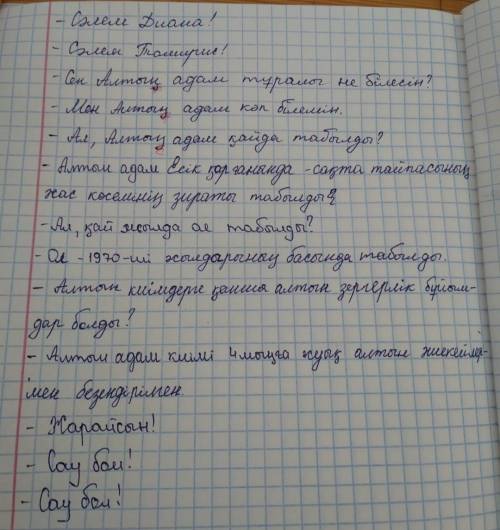 - Сәлем Диана!
- Сәлем Томирис!
- Сен Алтың адам туралы не білесін?
- Мен Алтың адам көп білемін.
- Ал, Алтың адам қайда табылды?
- Алтын адам Есік қорғанында - сақта тайпасының
жас көсемнің зираты табылды
- Ал, қай жылда ол табылды?
- Ол - 1970-ші жылдарының басында табылды.
- Алтын киімдерге қанша алтын зергерлік бұйым-
дар болды?
- Алтын адам киімі 4 мыңға жуық алтын
мен безендірілмен.
- Жарайсын!
- Сау бол!
- Сау бол!